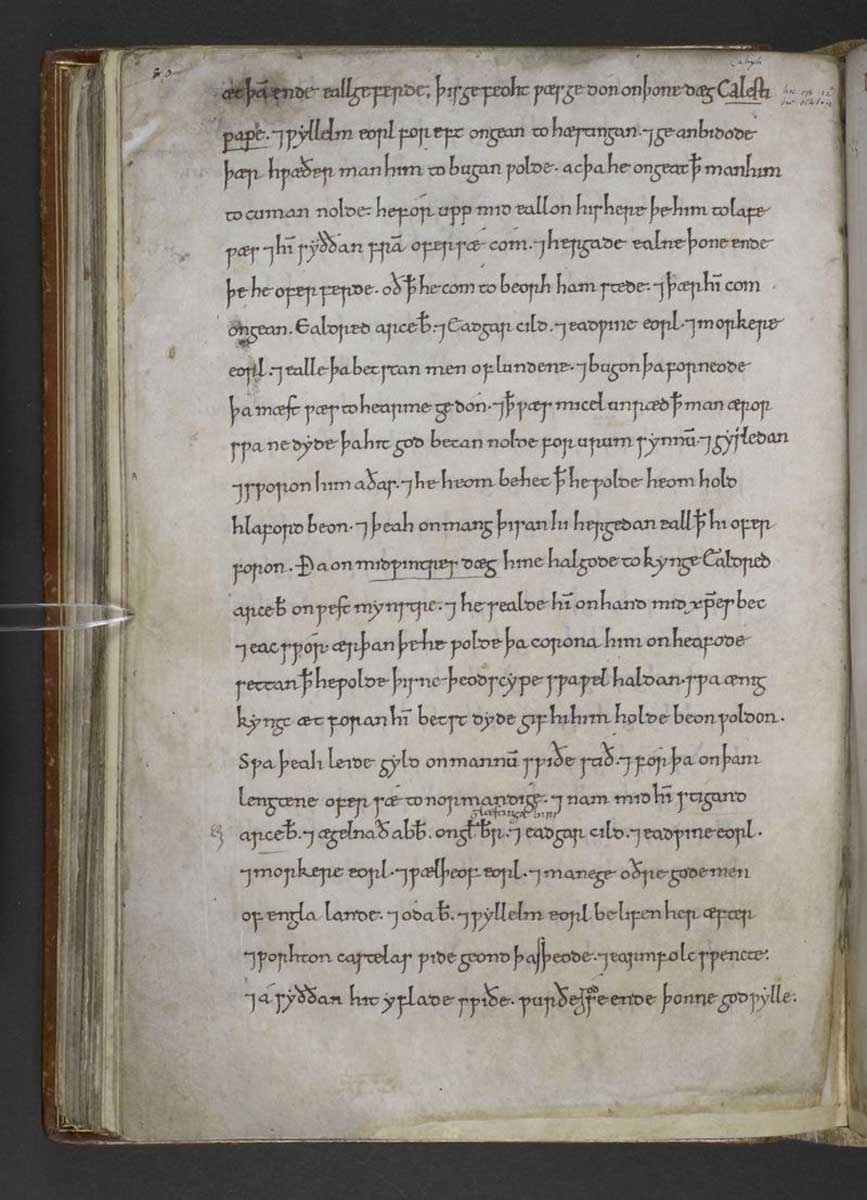 80
æt þā ende eall geferde. þis gefeoht ƿæs gedon on þone dæg Calesti
pape. ⁊ ƿyllelm eorl for eft ongean to hæstingan. ⁊ geanbidode
þær hƿæðer man him to bugan ƿolde. ac þa he ongeat ꝥ man him
to cuman nolde. he fór upp mid eallon his here þe him to lafe
ƿæs ⁊ hī syððan frā ofer sǽ com. ⁊ hergade ealne þone ende
þe he ofer ferde. oð ꝥ he com to beorh ham stede. ⁊ þær hī com
ongean. Ealdred arceƀ. ⁊ Eadgar cild. ⁊ eadƿine eorl. ⁊ morkere
eorl. ⁊ ealle þa betstan men of lundene. ⁊ bugon þa for neode
þa mæst ƿæs to hearme gedón. ⁊ ꝥ ƿæs micel unræd ꝥ man æror
sƿa ne dyde þa hit god betan nolde for urum synnū. ⁊ gysledan
⁊ sƿoron him aðas. ⁊ he heom behet ꝥ he ƿolde heom hold
hlaford beon. ⁊ þeah onmang þisan hi hergedan eall ꝥ hi ofer
foron. Ða on midƿintres dæg hine halgode to kynge Ealdred
arceƀ on ƿest mynstre. ⁊ he sealde hī on hand mid xp̄es bec
⁊ eac sƿór ær þan þe he ƿolde þa corona him on heafode
settan ꝥ he ƿolde þisne þeodscype sƿa ƿel haldan. sƿa ænig
kyngc æt foran hī betst dyde gif hi him holde beon ƿoldon.
Sƿa þeah leide gyld on mannū sƿiðe stið. ⁊ fór þa on þam
lengtene ofer sǽ to normandige. ⁊ nam mid hī stigand
arceƀ. ⁊ ægelnað abƀ. on glæstingabiri. ⁊ eadgar cild. ⁊ eadƿine eorl.
⁊ morkere eorl. ⁊ ƿælþeof eorl. ⁊ manege oðre gode men
of engla lande. ⁊ oda ƀ. ⁊ ƿyllelm eorl belifen her æfter
⁊ ƿorhton castelas ƿide geond þas þeode. ⁊ earm folc sƿencte.
⁊ á syððan hit yflade sƿiðe. ƿurðe god se ende þonne god ƿylle.